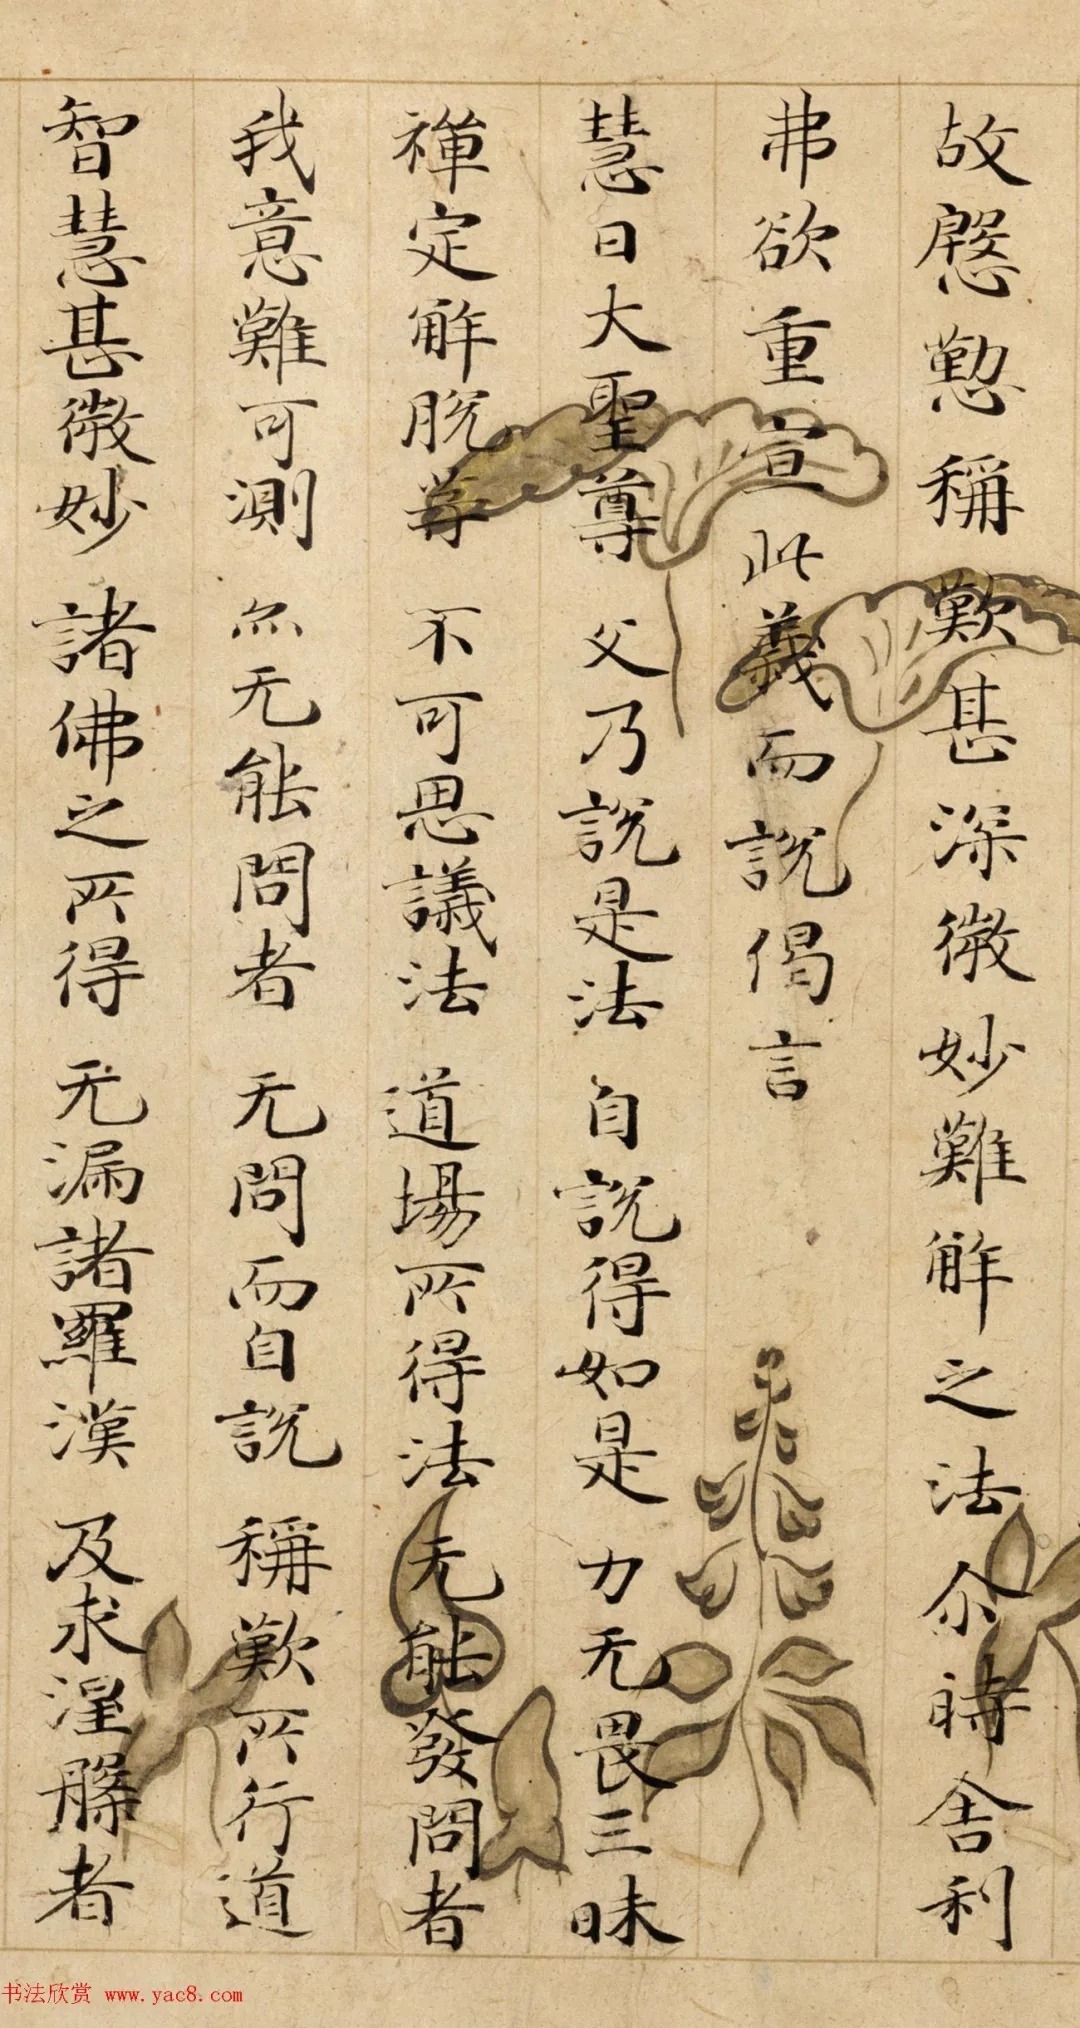 故慇懃稱歎甚深微妙難解之法尒時舍利
弗欲重宣此義而說偈言
慧日大聖尊 父乃說是法 自說得如是 力无畏三昧
禪定解脫等 不可思議法 道場所得法 无能發問者
我意難可測 亦无能問者 无問而自說 稱歎所行道
智慧甚微妙 諸佛之所得 无漏諸羅漢 及求涅槃者
书法欣赏 www.yac8.com